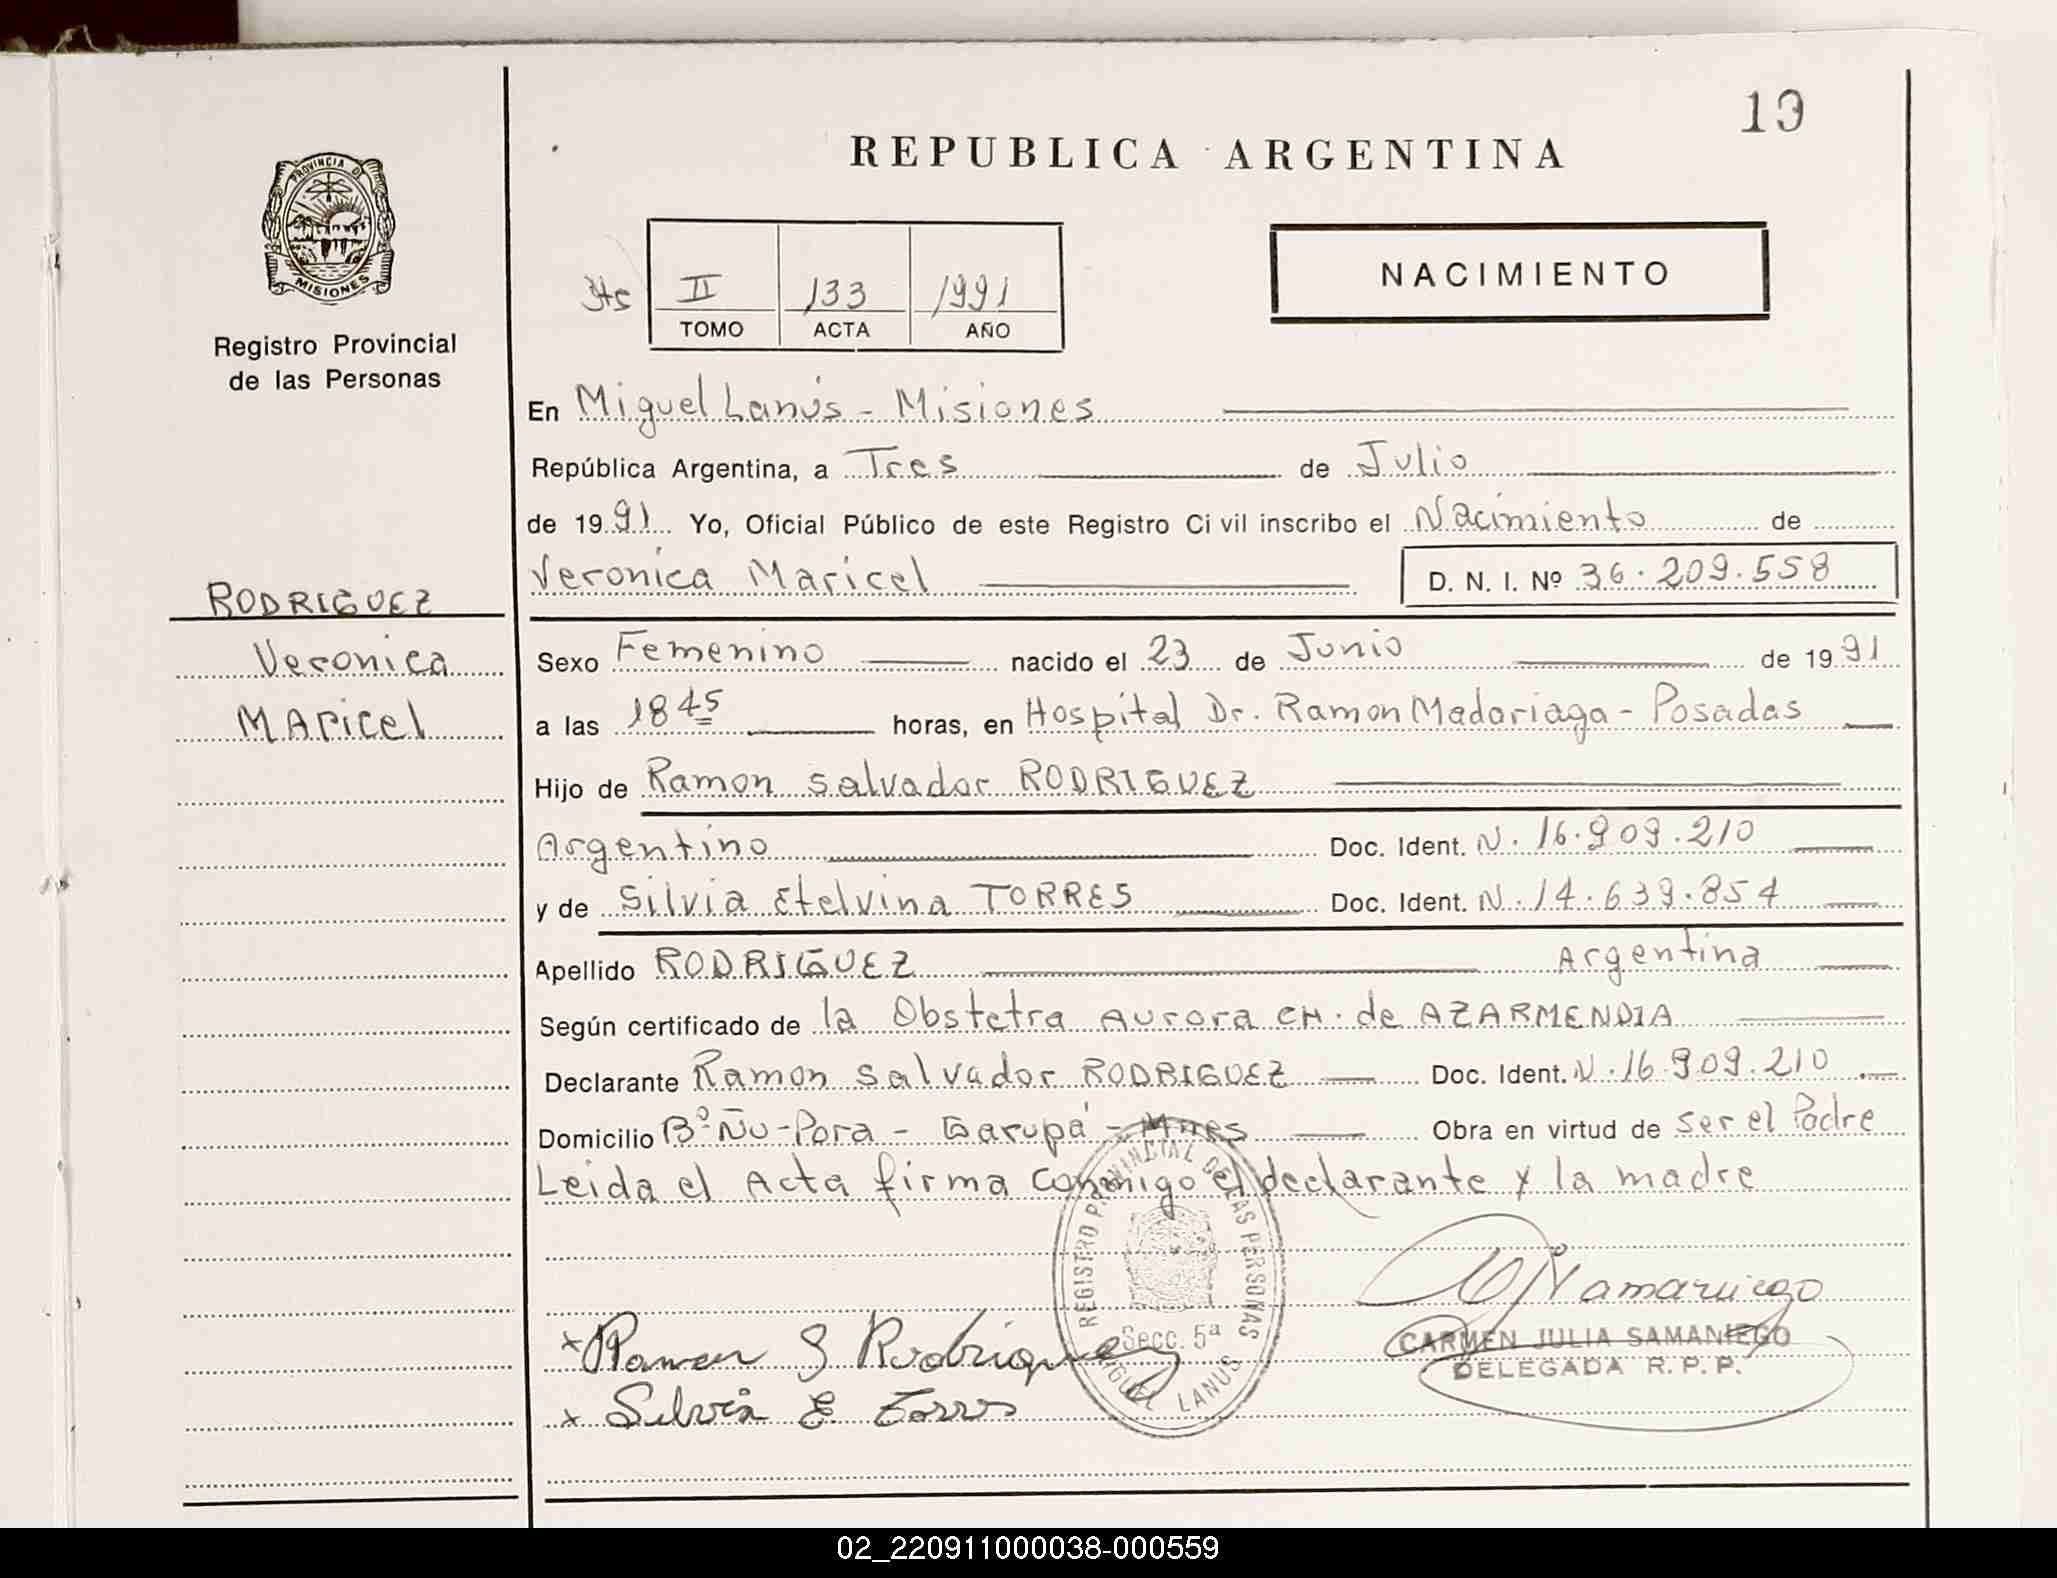 19
REPUBLICA ARGENTINA
PROVINCIA DE
MISIONES
Registro Provincial
de las Personas
II 133 1991
TOMO ACTA AÑO
NACIMIENTO
En Miguel Lanús - Misiones
República Argentina, a Tres de Julio
de 1991 Yo, Oficial Público de este Registro Civil inscribo el Nacimiento de
Veronica Maricel D. N. I. Nº 36.209.558
RODRIGUEZ
Veronica
MARicel
Sexo Femenino nacido el 23 de Junio de 1991
a las 18 45 horas, en Hospital Dr. Ramon Madariaga - Posadas
Hijo de Ramon Salvador RODRIGUEZ
Argentino Doc. Ident. N. 16.909.210
y de Silvia Etelvina TORRES Doc. Ident. N. 14.639.854
Apellido RODRIGUEZ Argentina
Según certificado de la Obstetra Aurora CH. de AZARMENDIA
Declarante Ramon Salvador RODRIGUEZ Doc. Ident. N. 16.909.210
Domicilio Bº Ñu-Pora - Garupá - Mnes Obra en virtud de ser el Padre
Leida el Acta firma conmigo el declarante y la madre
REGISTRO PROVINCIAL DE LAS PERSONAS
Secc. 5ª
MIGUEL LANUS
x Ramon S Rodriguez
x Silvia E Torres
CARMEN JULIA SAMANIEGO
DELEGADA R. P. P.
02_220911000038-000559